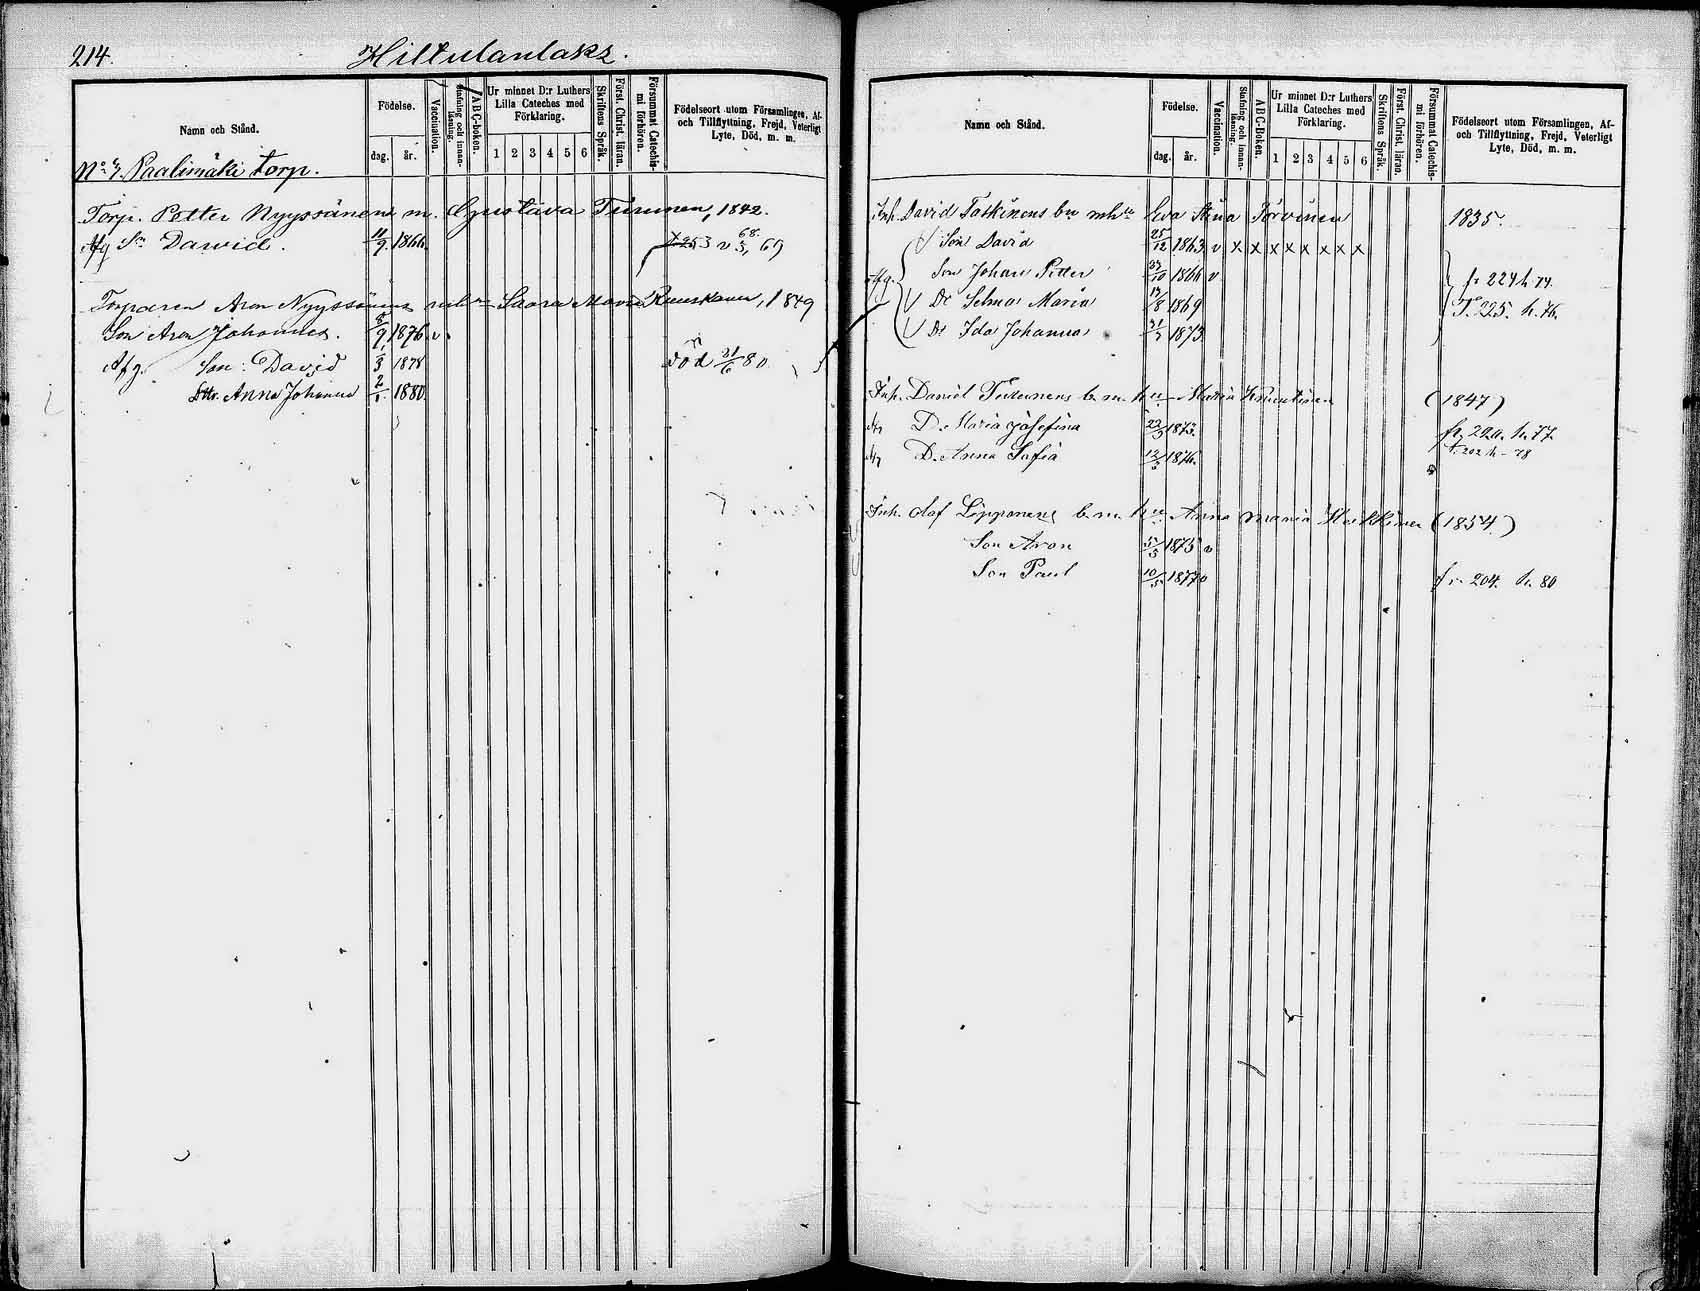 214.
Hiltulanlaks.
Namn och Stånd.
Födelse.
dag.
år.
Vaccination.
Stafning och innanläsning.
ABC-boken.
Ur minnet D:r Luthers Lilla Cateches med Förklaring.
1 2 3 4 5 6
Skriftens Språk.
Först. Christ. läran.
Försummat Catechismi förhören.
Födelseort utom Församlingen, Af- och Tillflyttning, Frejd, Veterligt Lyte, Död, m. m.
Paalimäki torp.
Torp. Petter Nyyssönens m. Gustava Turunen, 1842.
Afg Sn Dawid. 11/9 1866.
Torparen Aron Nyyssönens mhu Saara Maria Ruuskanen, 1849
Son Aron Johannes. 8/9 1876. v.
Afg. Son: David 1/3 1878 död 21/6 80
Dtr. Anna Johanna 2/1 1880.
Namn och Stånd.
Födelse.
dag.
år.
Vaccination.
Stafning och innanläsning.
ABC-Boken.
Ur minnet D:r Luthers Lilla Cateches med Förklaring.
1 2 3 4 5 6
Skriftens Språk.
Först. Christ. läran.
Försummat Catechismi förhören.
Födelseort utom Församlingen, Af- och Tillflyttning, Frejd, Veterligt Lyte, Död, m. m.
Inh. David Taskinens bn mhu Eva Stina 1835.
Son David 25/12 1863 v x x x x x x x x
Afg. Son Johan Petter 1866 v fr 224 h 74.
Dr Selma Maria 1869 T. 225. h. 76.
Dr Ida Johanna 1873
Inh. Daniel b. m. hu Maria (1847)
Afg D. Maria Josefina 1873. fr. 220. h. 77
Afg D. Anna Sofia 1876. T. 202 h - 78
Inh. Olof Lipponens b. m. hu Anna Maria Heikkinen (1854)
Son Aron 1875 v
Son Paul 10/5 1877 v fr. 204. h. 80